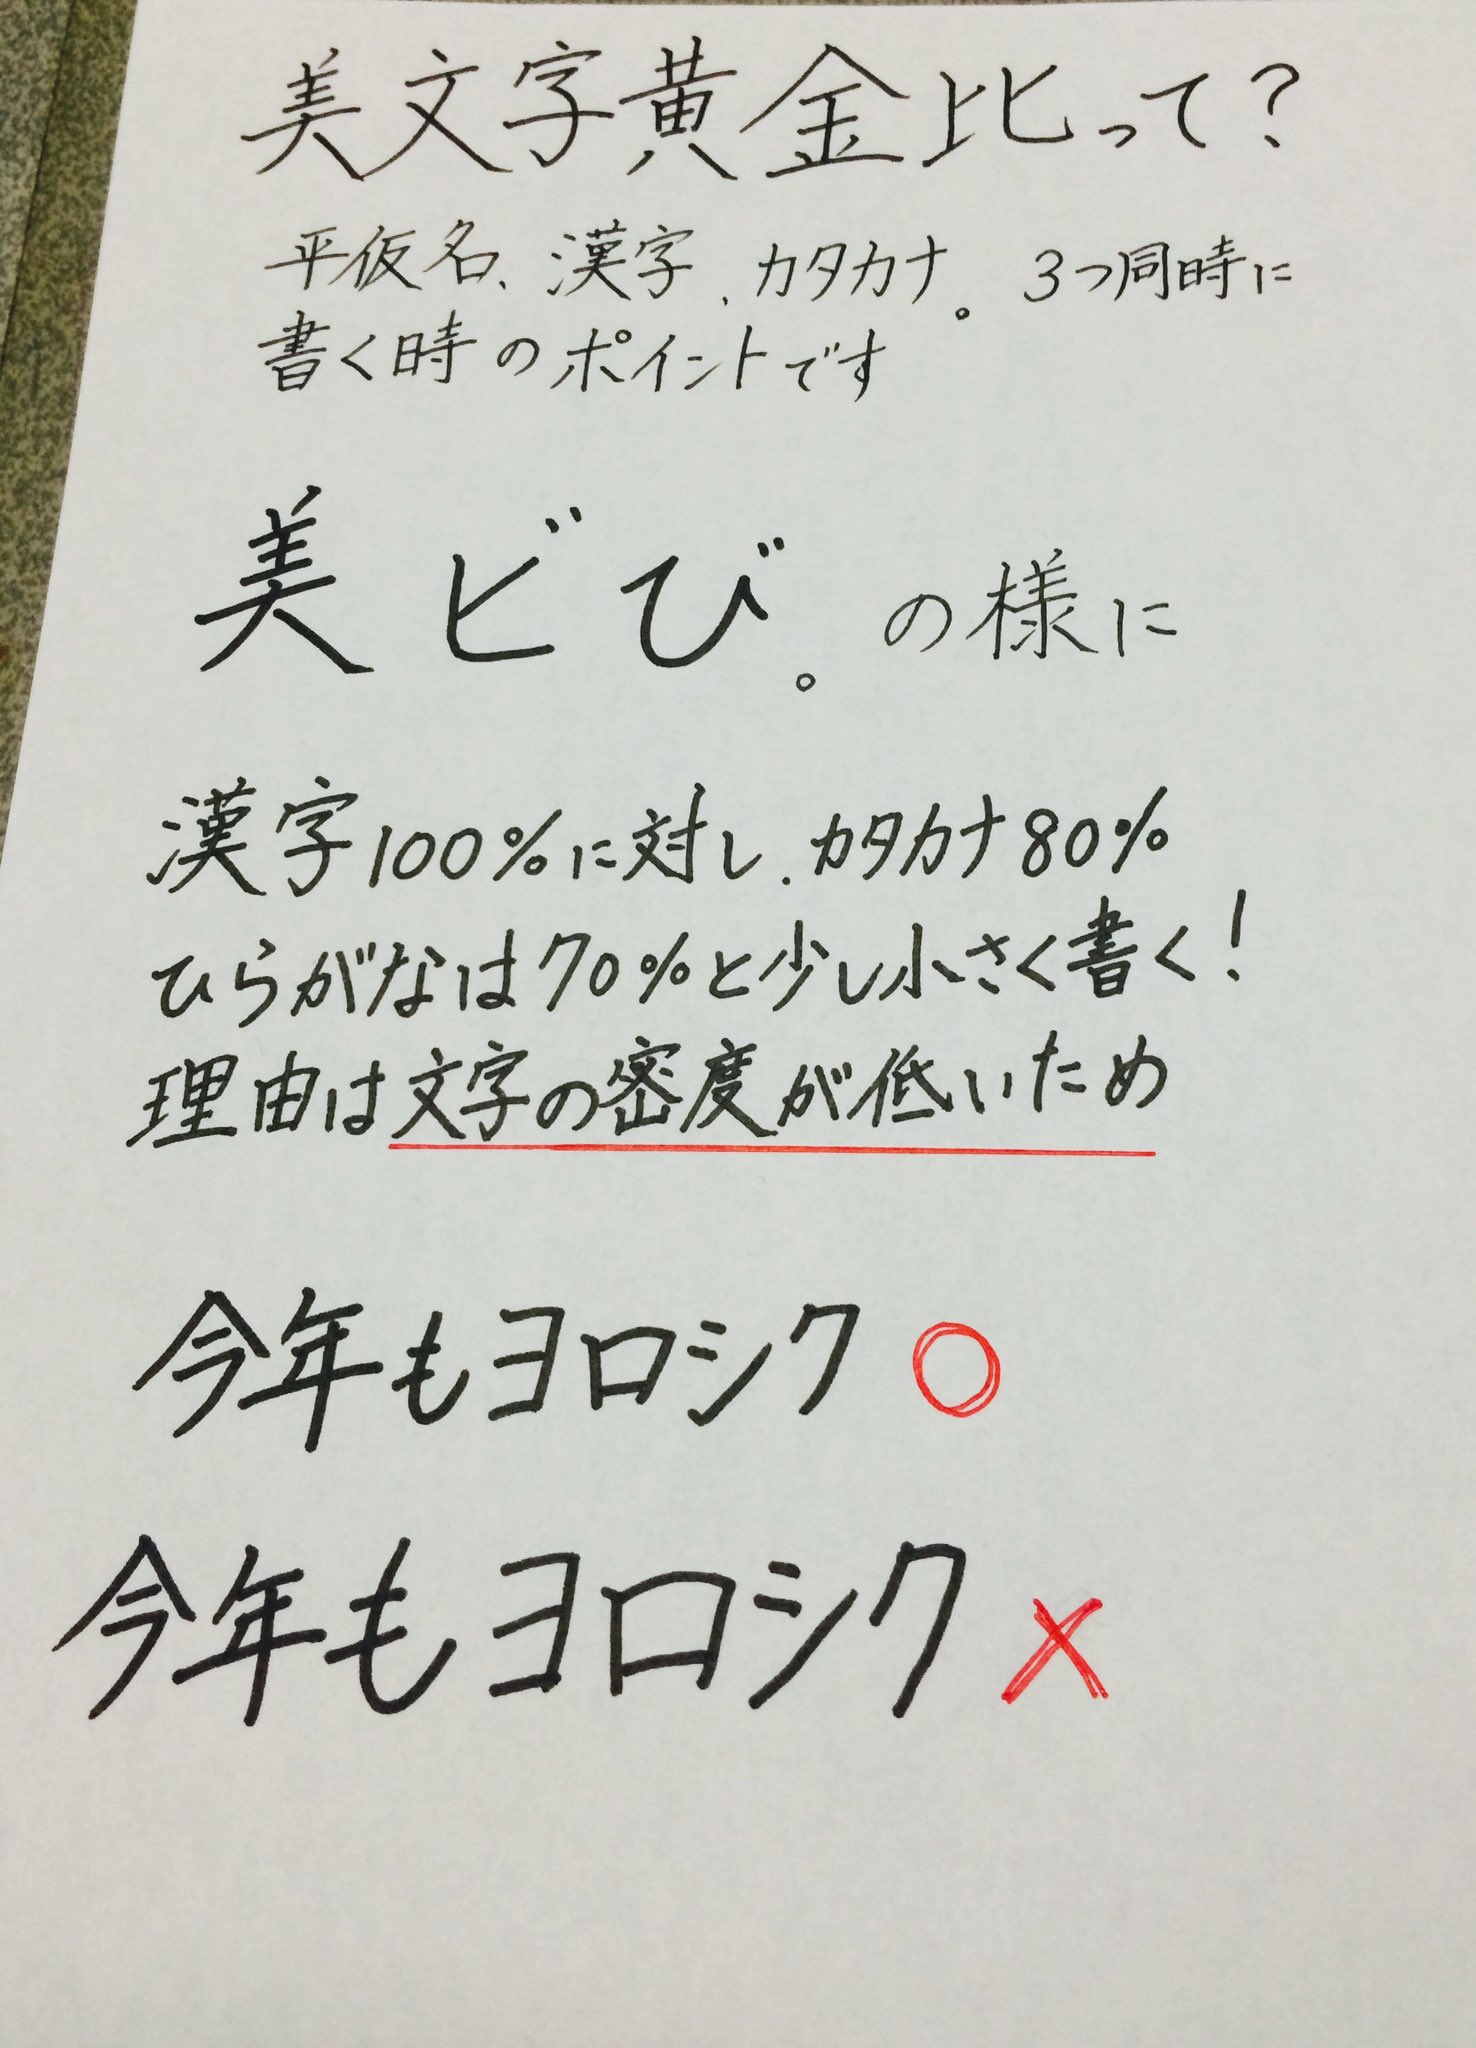 美文字黄金比って?
平仮名、漢字、カタカナ。3つ同時に
書く時のポイントです
美ビび。の様に
漢字100%に対し、カタカナ80%
ひらがなは70%と少し小さく書く!
理由は文字の密度が低いため
今年もヨロシク○
今年もヨロシク×